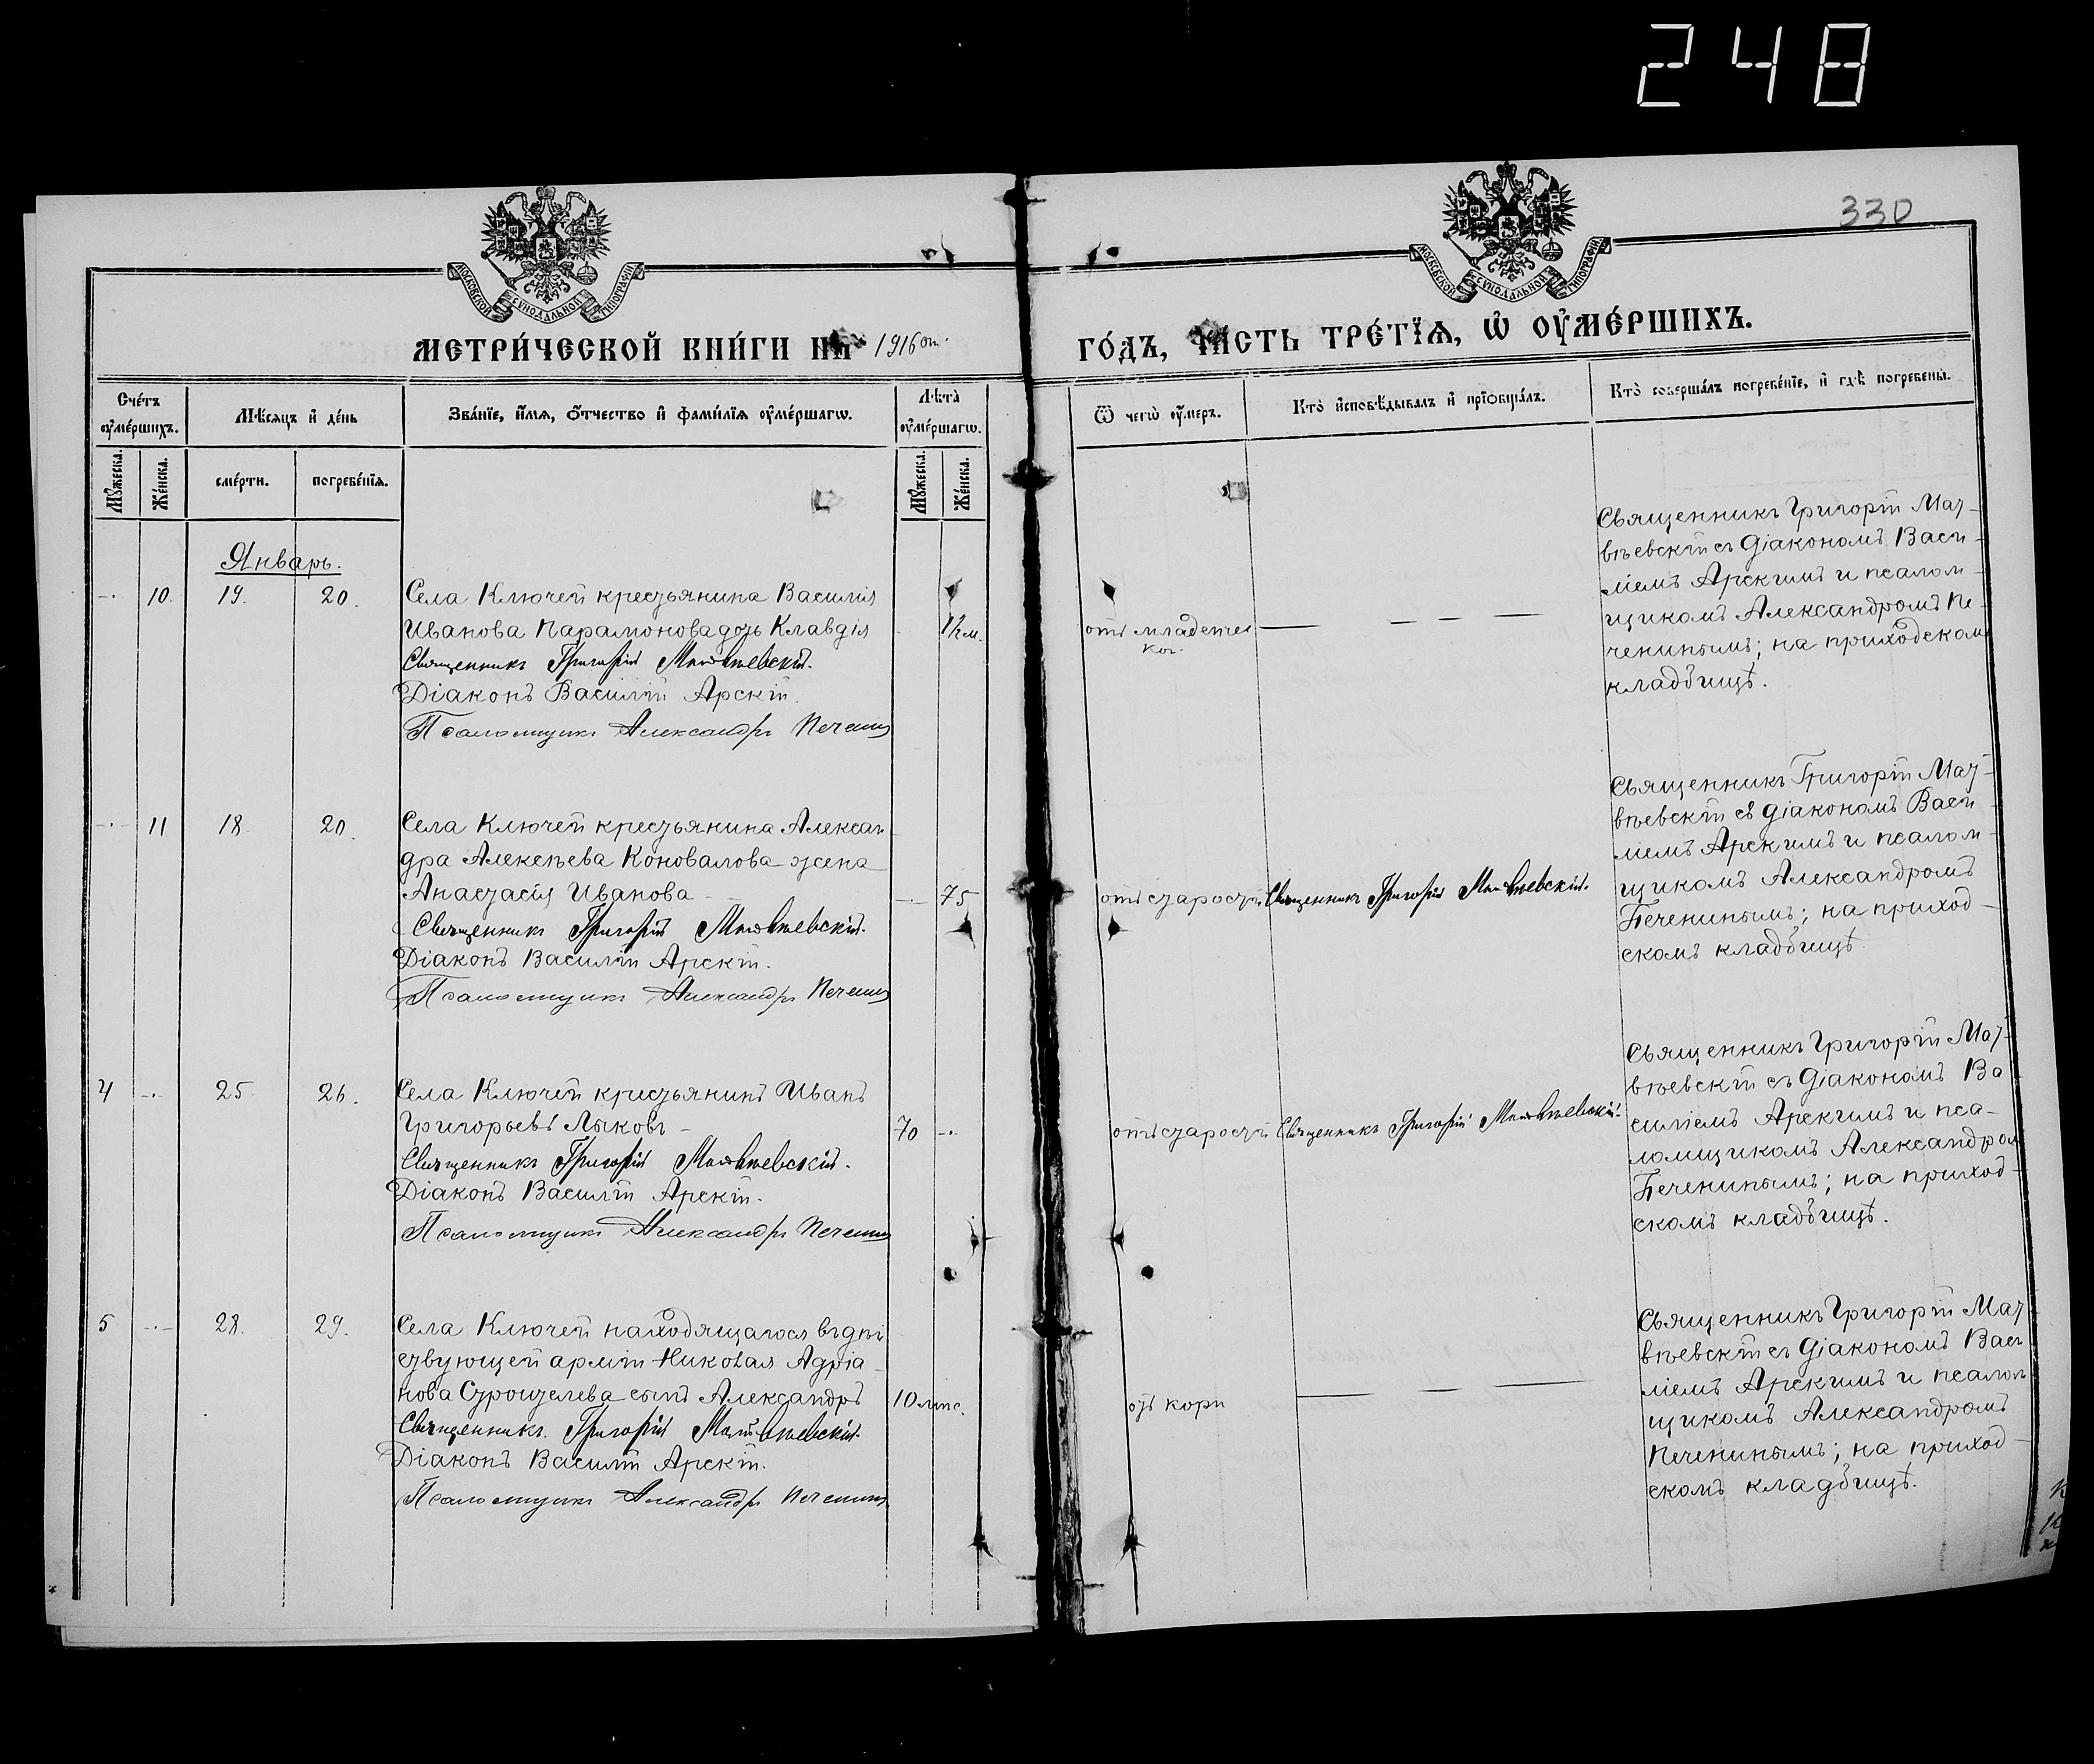 248
330
МОСКОВСКОЙ СѴНОДАЛЬНОЙ ТИПОГРАФІИ
МОСКОВСКОЙ СѴНОДАЛЬНОЙ ТИПОГРАФІИ
МЕТРИ́ЧЕСКОЙ КНИ́ГИ НА 1916 ой.
ГО́ДЪ, ЧА́СТЬ ТРЕ́ТЇѦ, Ѡ҆ ОУ҆МЕ́РШИХЪ.
Сче́тъ оу҆ме́ршихъ.
Мѣ́сяцъ и҆ де́нь
Зва́нїе, и҆́мя, ѻ҆́тчество и҆ фами́лїя оу҆ме́ршагѡ.
Лѣта̀ оу҆ме́ршагѡ.
Ѿ чегѡ̀ оу҆́меръ.
Кто̀ и҆сповѣ́дывалъ и҆ прїѡбща́лъ.
Кто̀ соверша́лъ погребе́нїе, и҆ гдѣ̀ погребены̀.
Мꙋ́жеска.
Же́нска.
сме́рти.
погребе́нїя.
Мꙋ́жеска.
Же́нска.
Январь.
10. 19. 20. Села Ключей крестьянина Василия
Иванова Парамонова дочь Клавдія
Священникъ Григорій Матвѣевскій.
Діаконъ Василій Арскій.
Псаломщикъ Александръ Печенин
отъ младенчес
кой.
Священникъ Григорій Мат-
вѣевскій съ діакономъ Васи-
ліемъ Арскимъ и псалом-
щикомъ Александромъ Пе-
ченинымъ; на приходском
кладбищѣ.
11 18. 20. Села Ключей крестьянина Алексан
дра Алексѣева Коновалова жена
Анастасія Иванова 75
Священникъ Григорій Матвѣевскій.
Діаконъ Василій Арскій.
Псаломщикъ Александръ Печенин
отъ старости Священникъ Григорій Матвѣевскій.
Священникъ Григорій Мат-
вѣевскій съ діакономъ Васи-
ліемъ Арскимъ и псалом-
щикомъ Александромъ
Печенинымъ; на приход-
скомъ кладбищѣ
4 25. 26. Села Ключей крестьянинъ Иванъ
Григорьевъ Лыковъ - 70
Священникъ Григорій Матвѣевскій.
Діаконъ Василій Арскій.
Псаломщикъ Александръ Печенин
отъ старости Священникъ Григорій Матвѣевскій.
Священникъ Григорій Мат-
вѣевскій съ діакономъ Ва
силіемъ Арскимъ и пса-
ломщикомъ Александром
Печенинымъ; на приход-
скомъ кладбищѣ.
5 28. 29. Села Ключей находящагося въ дѣй
ствующей арміи Николая Адріа-
нова сынъ Александръ 10 мѣс.
Священникъ Григорій Матвѣевскій.
Діаконъ Василій Арскій.
Псаломщикъ Александръ Печенин
отъ кори
Священникъ Григорій Мат
вѣевскій съ діакономъ Васи
ліемъ Арскимъ и псалом
щикомъ Александромъ
Печенинымъ; на приход-
скомъ кладбищѣ.